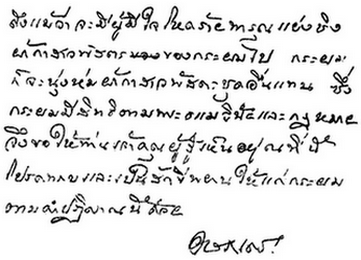 ถึงแม้ว่าจะมีผู้มีใจโหดร้ายทารุณแย่งชิง
ผ้ากาสาวพัสตรของกระผมไป กระผม
ก็จะนุ่งห่มผ้ากาสาวพัสตร์ชุดอื่นแทน ซึ่ง
กระผมมีสิทธิตามพระธรรมวินัยและกฎหมาย
จึงขอให้ท่านเจ้าคุณผู้รู้เห็นอยู่ ณ ที่นี้
โปรดทราบและเป็นสักขีพยานให้แก่กระผม
ตามคำปฏิญาณนี้ด้วย